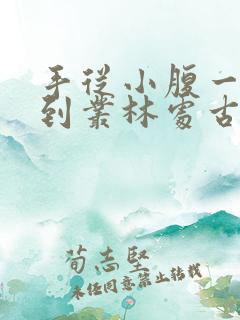 手从小腹一
到丛林处古
荀志坚
未经同意禁止转载